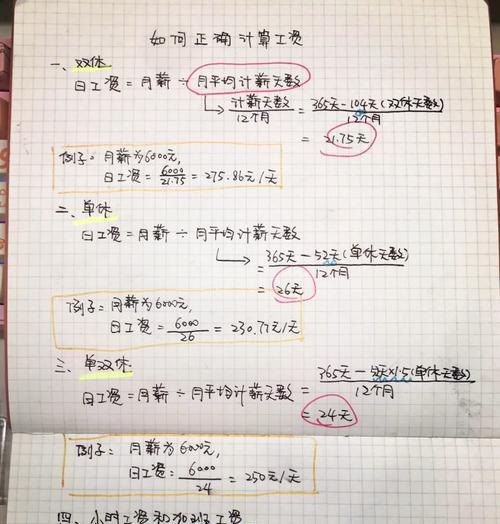 如何正确计算工资
一、双休
日工资=月薪÷月平均计薪天数
计薪天数/12个月 = 365天-104天(双休天数)/12个月
= 21.75天
例子:月薪为6000元,
日工资=6000/21.75=275.86元/天
二、单休
日工资=月薪÷月平均计薪天数
=365天-52天(单休天数)/12个月
=26天
例子:月薪为6000元,
日工资=6000/26=230.77元/天
三、单双休
日工资=月薪÷月平均计薪天数=365天-52天×1.5(单休天数)/12个月
=24天
例子:月薪为6000元,
日工资=6000/24=250元/天
四、小时工资和加班工资